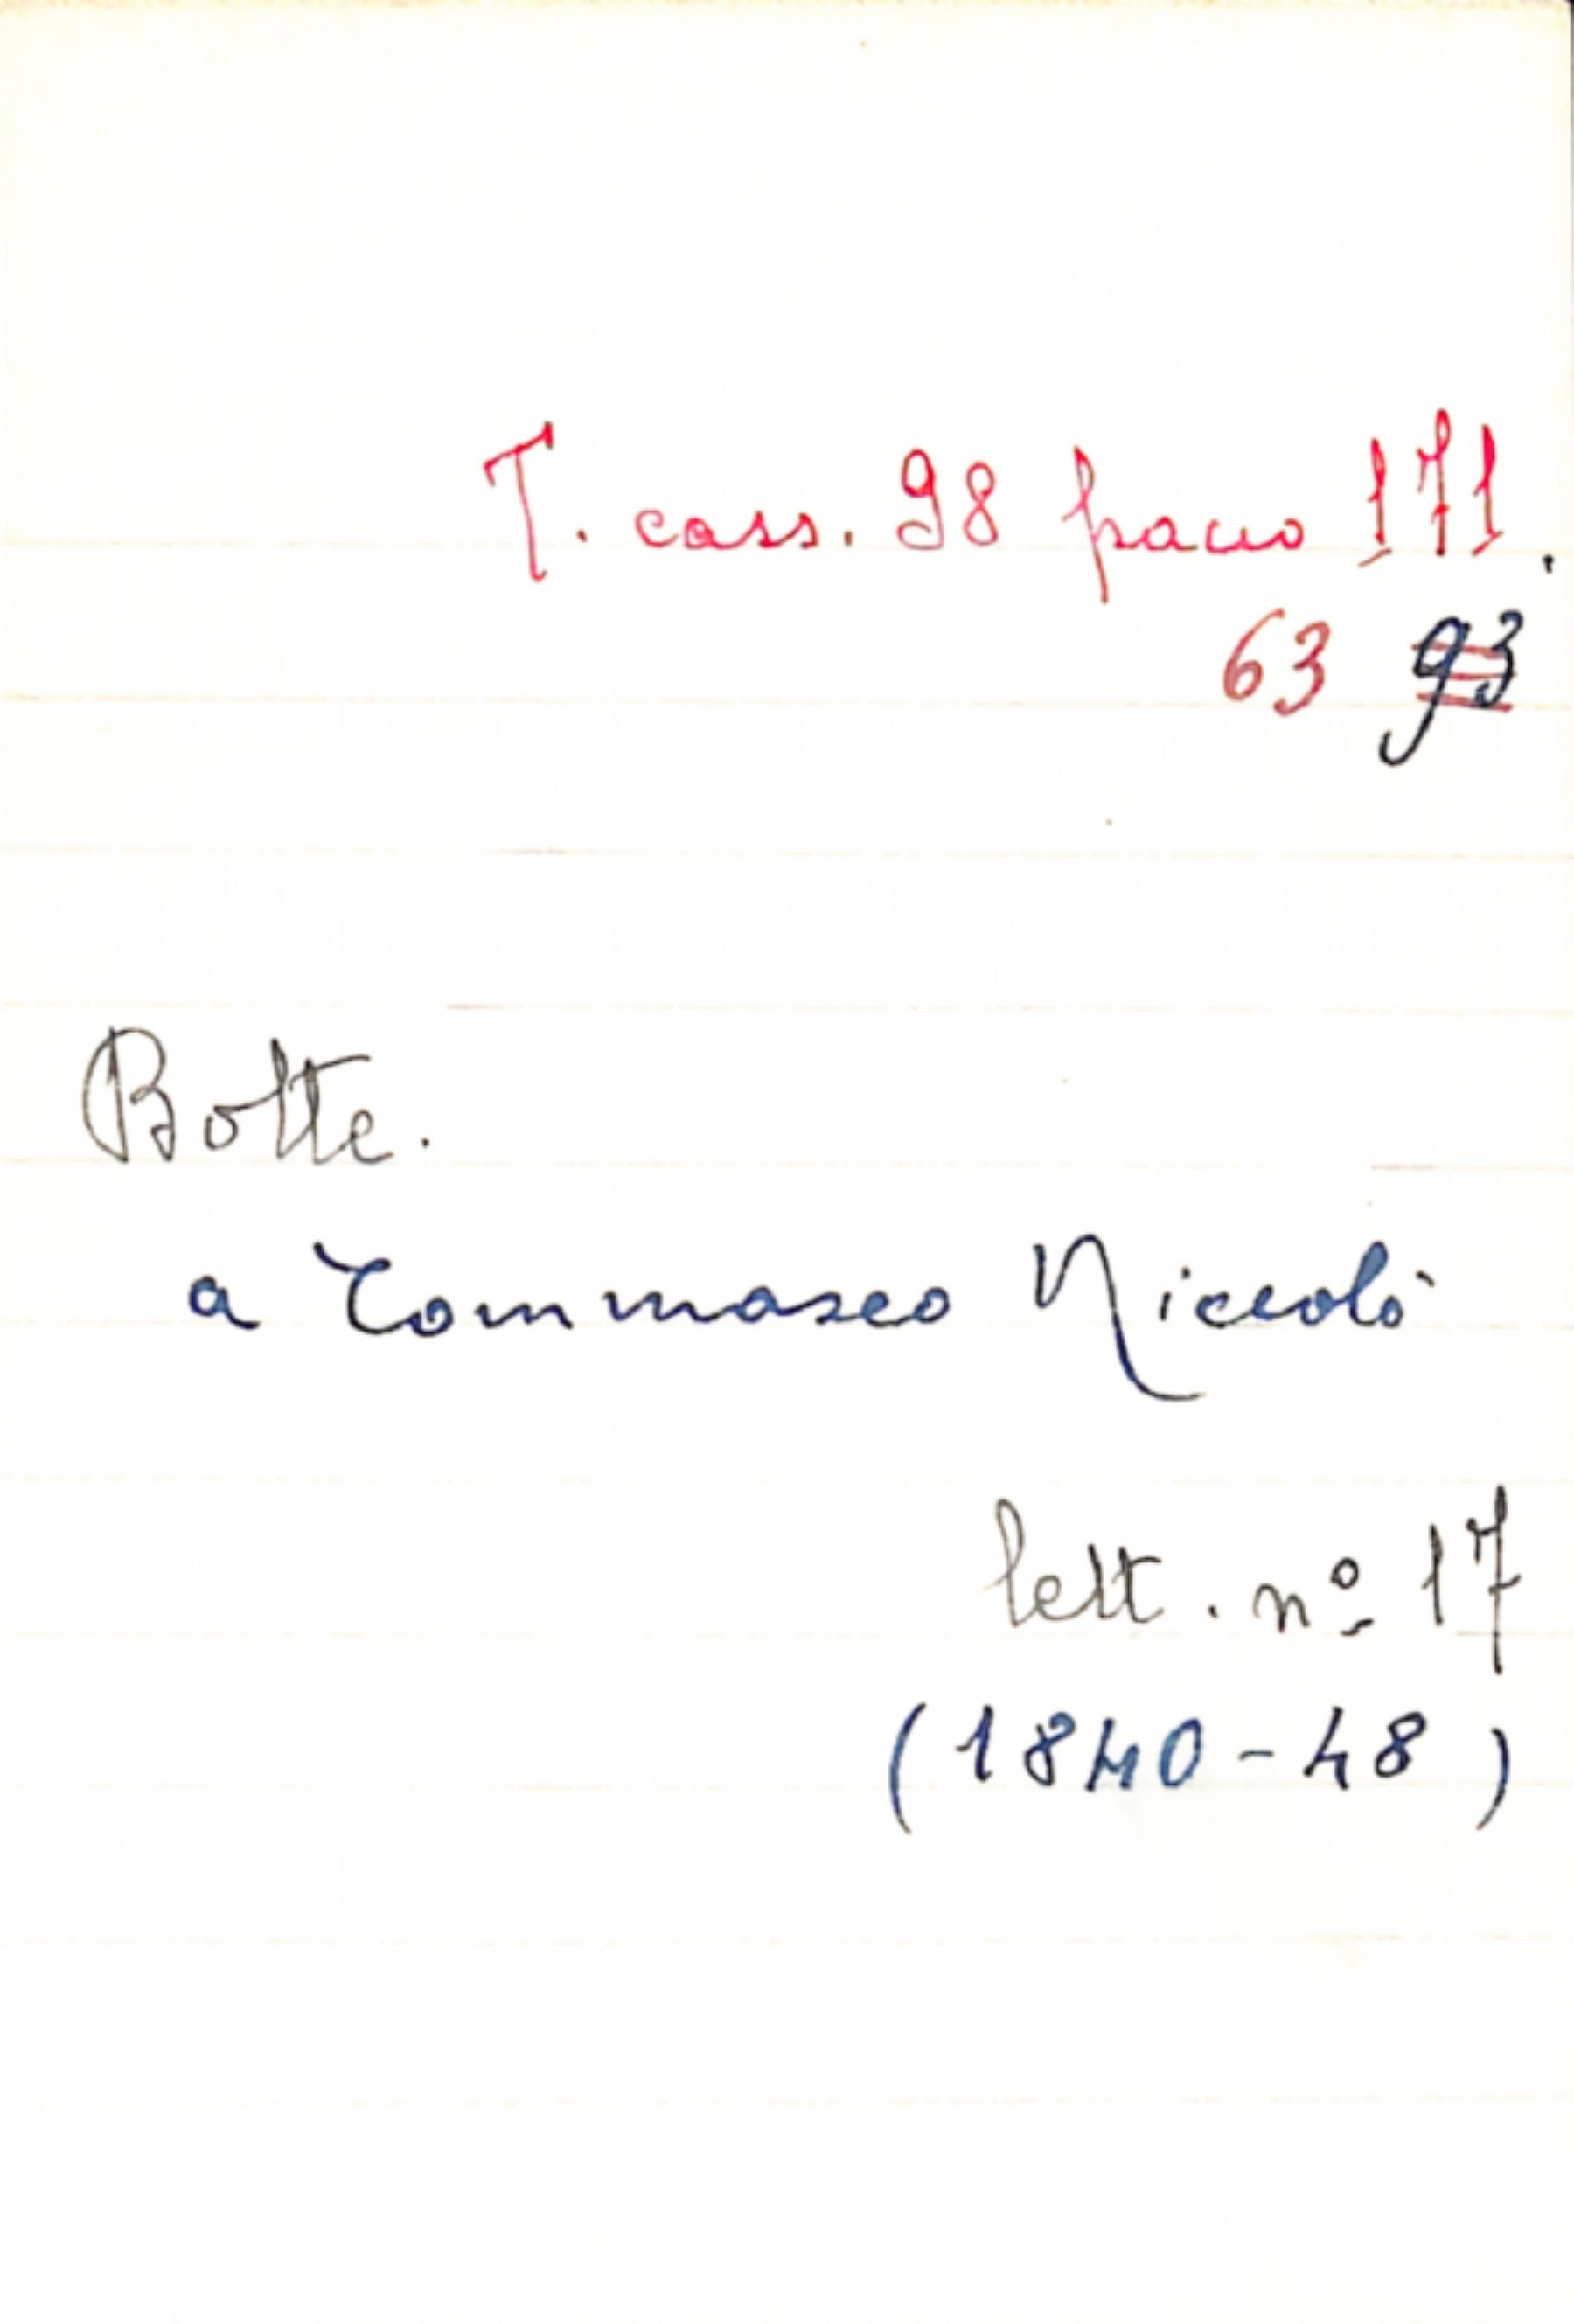 T. cass. 98 pacco 171.
63 93
Botte.
a Tommaseo Niccolò
lett. nº 17
(1840-48)